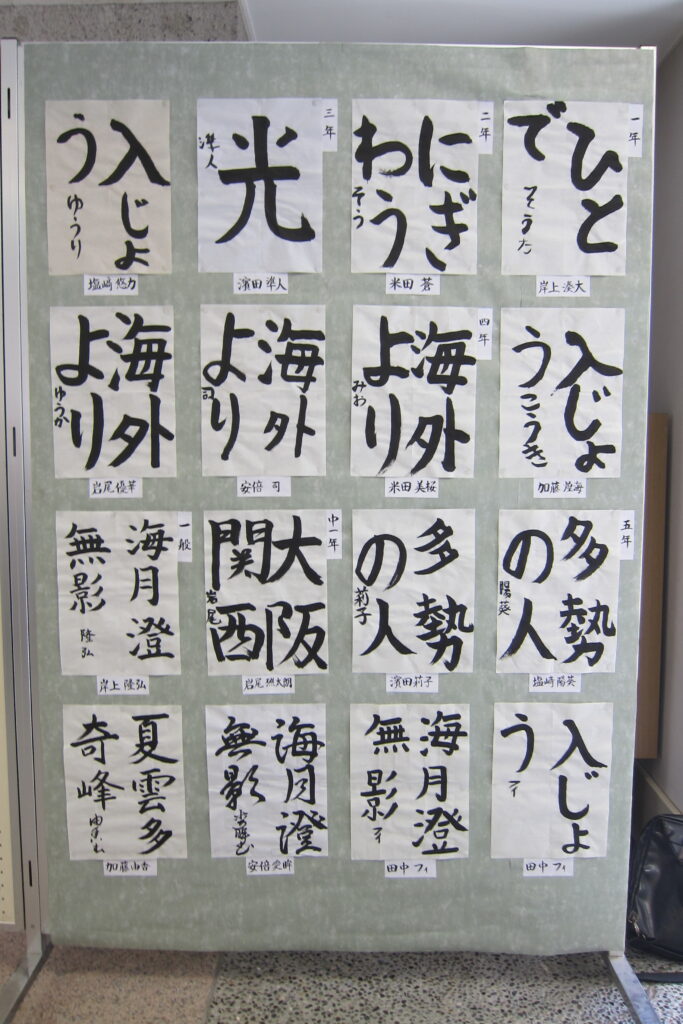 一年
ひと
で
そうた
岸上 湊大
二年
にぎ
わう
そう
米田 蒼
三年
光
準人
濱田 準人
入じょ
う
ゆうり
塩崎 悠力
入じょ
う
こうき
加藤
四年
海外
より
みお
米田 美桜
海外
より
司
安倍 司
海外
より
ゆうか
岩尾 優華
五年
多勢
の人
陽葵
塩崎 陽葵
多勢
の人
莉子
濱田 莉子
中一年
大阪
関西
岩尾
岩尾
一般
海月澄
無影
隆弘
岸上 隆弘
入じょ
う
フィ
田中 フィ
海月澄
無影
フィ
田中 フィ
海月澄
無影
安倍
夏雲多
奇峰
加藤 由香